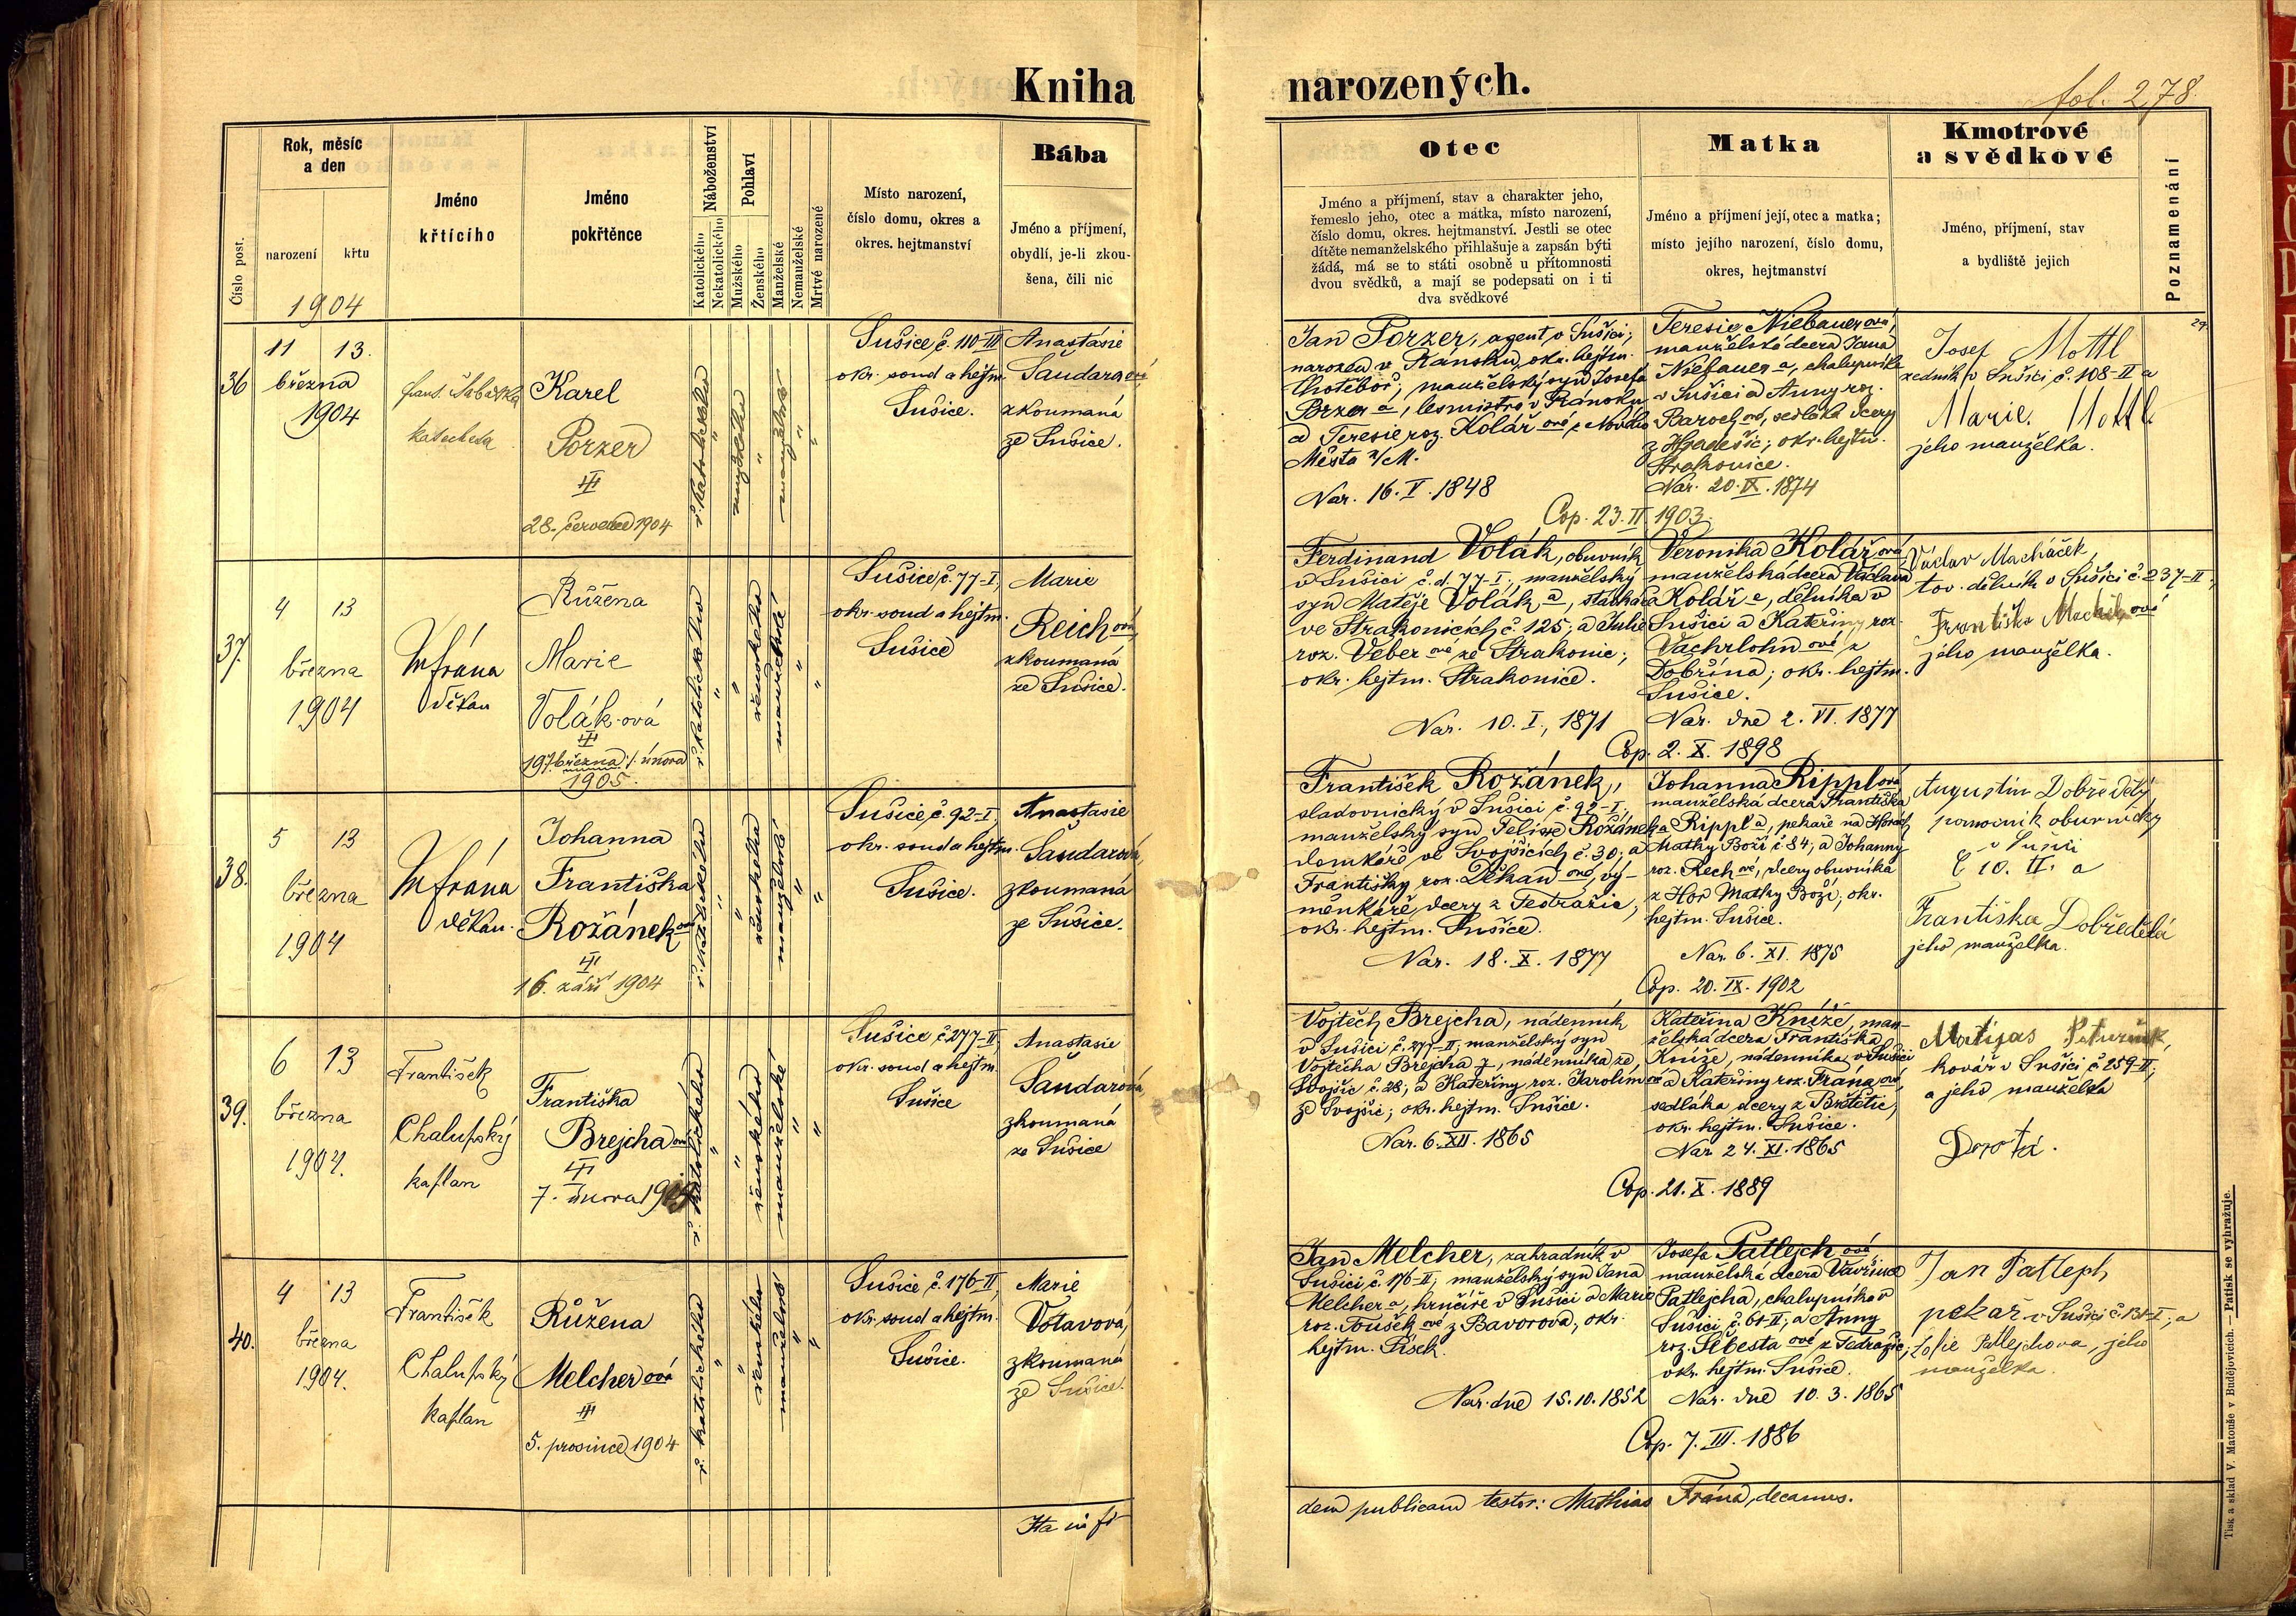 Kniha narozených.
fol. 278.
Číslo post.
Rok, měsíc
a den
narození
křtu
1904
Jméno
křtícího
Jméno
pokřtěnce
Náboženství
Katolického
Nekatolického
Pohlaví
Mužského
Ženského
Manželské
Nemanželské
Mrtvé narozené
Místo narození,
číslo domu, okres a
okres. hejtmanství
Bába
Jméno a příjmení,
obydlí, je-li zkou-
šena, čili nic
Otec
Jméno a příjmení, stav a charakter jeho,
řemeslo jeho, otec a matka, místo narození,
číslo domu, okres. hejtmanství. Jestli se otec
dítěte nemanželského přihlašuje a zapsán býti
žádá, má se to státi osobně u přítomnosti
dvou svědků, a mají se podepsati on i ti
dva svědkové
Matka
Jméno a příjmení její, otec a matka;
místo jejího narození, číslo domu,
okres, hejtmanství
Kmotrové
a svědkové
Jméno, příjmení, stav
a bydliště jejich
Poznamenání
36
11 13.
března
1904
katecheta
Karel
Porzer
III
28. července 1904
ř. katolického
mužského
manželské
Sušice č. 110-III
okr. soud a hejtm.
Sušice.
Anastasie
Šandarová
zkoumaná
ze Sušice.
Jan Porzer, agent v Sušici,
narozen v Ránsku, okr. hejtm.
Chotěboř, manželský syn Josefa
Porzer a, lesmistra v Ránsku
a Teresie roz. Kolář ové z Nového
Města n/M.
Nar. 16. V. 1848
Teresie Niebauer ová,
manželská dcera Jana
Niebauer a, chalupníka
v Sušici a Anny roz.
sedláka dcery
z Hradešic, okr. hejtm.
Strakonice.
Nar. 20. IX. 1874
Cop. 23. II. 1903.
Josef Mottl
zedník v Sušici č. 108-II a
Marie Mottl
jeho manželka.
37.
4 13
března
1904
M Frána
děkan
Růžena
Marie
Volák-ová
III
1905.
ř. katolického
ženského
manželské
Sušice č. 77-I,
okr. soud a hejtm.
Sušice
Marie
Reich ová,
zkoumaná
ze Sušice.
Ferdinand Volák, obuvník
v Sušici č. d. 77-I, manželský
syn Matěje Volák a,
ve Strakonicích č. 125, a Julie
roz. Veber ové ze Strakonic;
okr. hejtm. Strakonice.
Nar. 10. I. 1871
Veronika Kolář ová
manželská dcera Václava
Kolář a, dělníka v
Sušici a Kateřiny roz.
Vachrlohn ové z
Dobřína; okr. hejtm.
Sušice.
Nar. dne 2. VI. 1877
Cop. 2. X. 1898
Václav Macháček,
tov. dělník v Sušici č. 237-II,
Františka
jeho manželka.
38.
5 13
března
1904
M Frána
děkan.
Johanna
Františka
Rožánek ová
III
16. září 1904
ř. katolického
ženského
manželské
Sušice č. 92-I,
okr. soud a hejtm.
Sušice.
Anastasie
Šandarová,
zkoumaná
ze Sušice.
František Rožánek,
sladovnický v Sušici č. 92-I,
manželský syn Felixe Rožánek a
domkáře ve Svojšicích č. 30, a
Františky roz. Děkan ové, vý-
měnkáře dcery z Tedražic,
okr. hejtm. Sušice.
Nar. 18. X. 1877
Johanna Rippl ová
manželská dcera Františka
Rippl a, pekaře na Horách
Matky Boží č. 84, a Johanny
roz. Rech ové, dcery obuvníka
z Hor Matky Boží, okr.
hejtm. Sušice.
Nar. 6. XI. 1875
Cop. 20. IX. 1902
Augustin Dobředělý
pomocník obuvnický
v Sušici
č 10. II. a
Františka Dobředělá
jeho manželka.
39.
6 13
března
1904.
František
Chalupský
kaplan
Františka
Brejcha ová
III
7. února
ř. katolického
ženského
manželské
Sušice č. 277-II,
okr. soud a hejtm.
Sušice
Anastasie
Šandarová,
zkoumaná
ze Sušice
Vojtěch Brejcha, nádenník
v Sušici č. 277-II, manželský syn
Vojtěcha Brejcha y, nádenníka ze
Svojšic č. 28; a Kateřiny roz. Jarolím ové
ze Svojšic; okr. hejtm. Sušice.
Nar. 6. XII. 1865
Kateřina Kníže, man-
želská dcera Františka
Kníže, nádenníka v Sušici
a Kateřiny roz. Frána ové,
sedláka dcery z Brětětic,
okr. hejtm. Sušice.
Nar. 24. XI. 1865
Cop. 21. X. 1889
kovář v Sušici č. 259-II,
a jeho manželka
Dorota.
40.
4 13
března
1904.
František
Chalupský
kaplan
Růžena
Melcher ová
III
5. prosince 1904
ř. katolického
ženského
manželské
Sušice č. 176-II,
okr. soud a hejtm.
Sušice.
Marie
Votavová,
zkoumaná
ze Sušice.
Jan Melcher, zahradník v
Sušici č. 176-II, manželský syn Jana
Melcher a, hrnčíře v Sušici a Marie
roz. Toušek ové z Bavorova, okr.
hejtm. Písek.
Nar. dne 15. 10. 1852
Josefa Patlejch ová,
manželská dcera Vavřince
Patlejcha, chalupníka v
Sušici č. 61-II, a Anny
roz. Šebesta ové z Tedražic,
okr. hejtm. Sušice.
Nar. dne 10. 3. 1865
Cop. 7. III. 1886
Jan
pekař v Sušici č. 131-I, a
Patlejchova, jeho
manželka.
Ita in fi-
dem publicam testor: Mathias Frána, decanus.
Tisk a sklad V. Matouše v Budějovicích. — Patisk se vyhražuje.